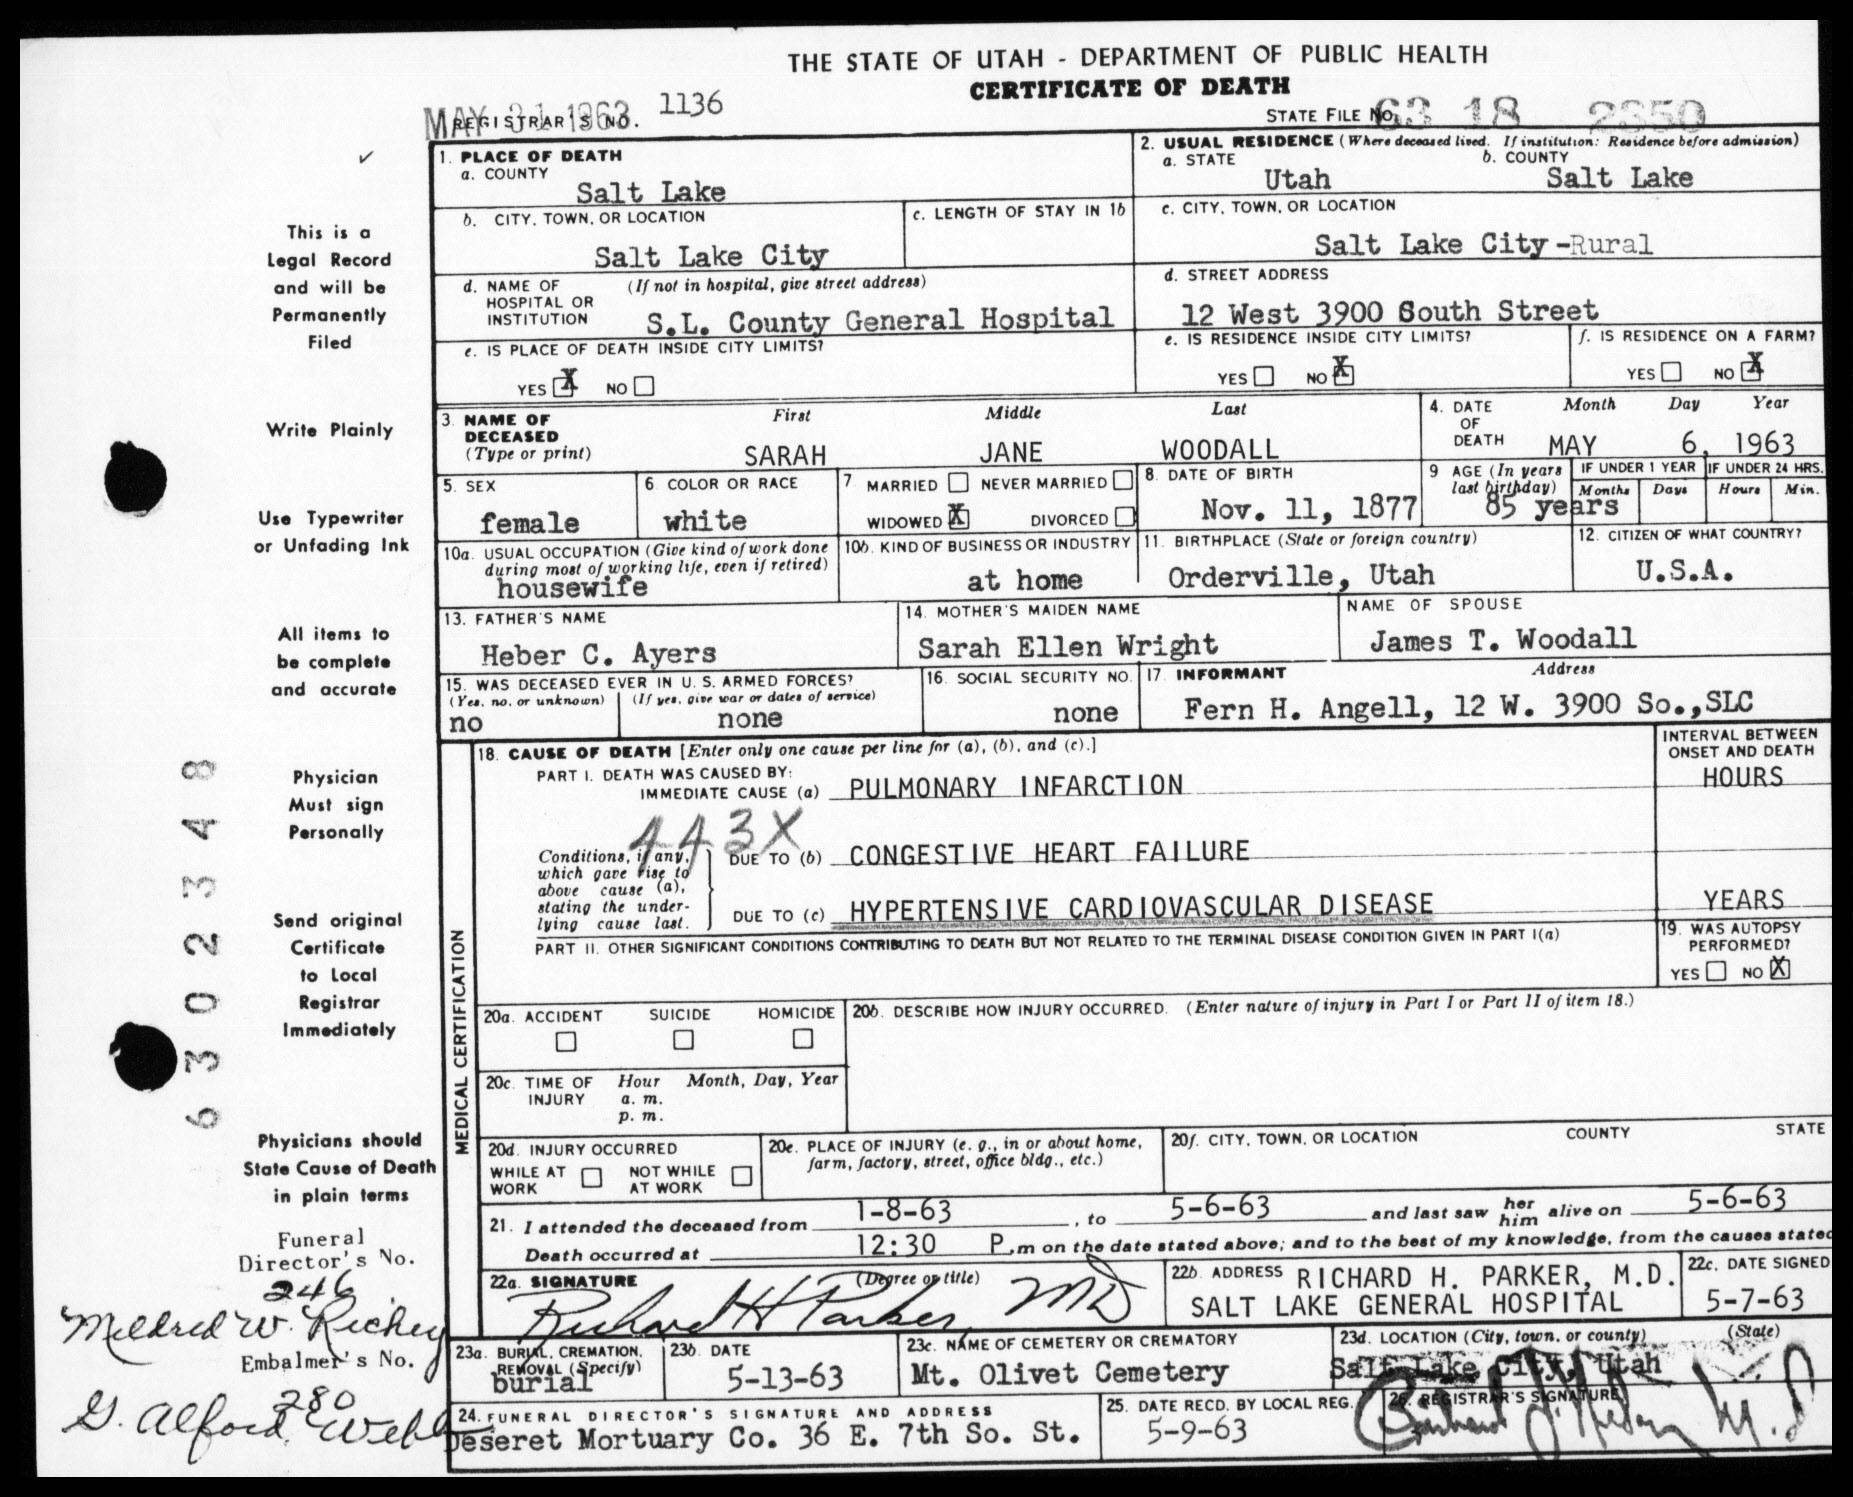 THE STATE OF UTAH - DEPARTMENT OF PUBLIC HEALTH
CERTIFICATE OF DEATH
MAY 31 1963
REGISTRAR'S NO. 1136
STATE FILE NO. 63 18 2350
This is a
Legal Record
and will be
Permanently
Filed
Write Plainly
Use Typewriter
or Unfading Ink
All items to
be complete
and accurate
Physician
Must sign
Personally
Send original
Certificate
to Local
Registrar
Immediately
Physicians should
State Cause of Death
in plain terms
Funeral
Director's No.
246
Mildred W. Richey
Embalmer's No.
280
G. Alford Webb
6302348
1. PLACE OF DEATH
a. COUNTY
Salt Lake
2. USUAL RESIDENCE (Where deceased lived. If institution: Residence before admission)
a. STATE
Utah
b. COUNTY
Salt Lake
b. CITY, TOWN, OR LOCATION
Salt Lake City
c. LENGTH OF STAY IN 1b
c. CITY, TOWN, OR LOCATION
Salt Lake City-Rural
d. NAME OF HOSPITAL OR INSTITUTION
(If not in hospital, give street address)
S.L. County General Hospital
d. STREET ADDRESS
12 West 3900 South Street
e. IS PLACE OF DEATH INSIDE CITY LIMITS?
YES X NO
e. IS RESIDENCE INSIDE CITY LIMITS?
YES NO X
f. IS RESIDENCE ON A FARM?
YES NO X
3. NAME OF DECEASED (Type or print)
First Middle Last
SARAH JANE WOODALL
4. DATE OF DEATH
Month Day Year
MAY 6, 1963
5. SEX
female
6. COLOR OR RACE
white
7. MARRIED NEVER MARRIED
WIDOWED X DIVORCED
8. DATE OF BIRTH
Nov. 11, 1877
9 AGE (In years last birthday)
85 years
IF UNDER 1 YEAR
Months Days
IF UNDER 24 HRS.
Hours Min.
10a. USUAL OCCUPATION (Give kind of work done during most of working life, even if retired)
housewife
10b. KIND OF BUSINESS OR INDUSTRY
at home
11. BIRTHPLACE (State or foreign country)
Orderville, Utah
12. CITIZEN OF WHAT COUNTRY?
U.S.A.
13. FATHER'S NAME
Heber C. Ayers
14. MOTHER'S MAIDEN NAME
Sarah Ellen Wright
NAME OF SPOUSE
James T. Woodall
15. WAS DECEASED EVER IN U. S. ARMED FORCES?
(Yes, no, or unknown)
no
(If yes, give war or dates of service)
none
16. SOCIAL SECURITY NO.
none
17. INFORMANT Address
Fern H. Angell, 12 W. 3900 So.,SLC
MEDICAL CERTIFICATION
18. CAUSE OF DEATH [Enter only one cause per line for (a), (b), and (c).]
INTERVAL BETWEEN ONSET AND DEATH
PART I. DEATH WAS CAUSED BY:
IMMEDIATE CAUSE (a) PULMONARY INFARCTION
HOURS
443X
Conditions, if any, which gave rise to above cause (a), stating the underlying cause last.
DUE TO (b) CONGESTIVE HEART FAILURE
DUE TO (c) HYPERTENSIVE CARDIOVASCULAR DISEASE
YEARS
PART II. OTHER SIGNIFICANT CONDITIONS CONTRIBUTING TO DEATH BUT NOT RELATED TO THE TERMINAL DISEASE CONDITION GIVEN IN PART I(a)
19. WAS AUTOPSY PERFORMED?
YES NO X
20a. ACCIDENT SUICIDE HOMICIDE
20b. DESCRIBE HOW INJURY OCCURRED. (Enter nature of injury in Part I or Part II of item 18.)
20c. TIME OF INJURY
Hour Month, Day, Year
a. m.
p. m.
20d. INJURY OCCURRED
WHILE AT WORK NOT WHILE AT WORK
20e. PLACE OF INJURY (e. g., in or about home, farm, factory, street, office bldg., etc.)
20f. CITY, TOWN, OR LOCATION COUNTY STATE
21. I attended the deceased from 1-8-63, to 5-6-63 and last saw her him alive on 5-6-63
Death occurred at 12:30 P.m on the date stated above; and to the best of my knowledge, from the causes stated
22a. SIGNATURE (Degree or title)
Richard H Parker MD
22b. ADDRESS RICHARD H. PARKER, M.D.
SALT LAKE GENERAL HOSPITAL
22c. DATE SIGNED
5-7-63
23a. BURIAL, CREMATION, REMOVAL (Specify)
burial
23b. DATE
5-13-63
23c. NAME OF CEMETERY OR CREMATORY
Mt. Olivet Cemetery
23d. LOCATION (City, town, or county) (State)
Salt Lake City, Utah
24. FUNERAL DIRECTOR'S SIGNATURE AND ADDRESS
Deseret Mortuary Co. 36 E. 7th So. St.
25. DATE RECD. BY LOCAL REG.
5-9-63
26. REGISTRAR'S SIGNATURE
M.D